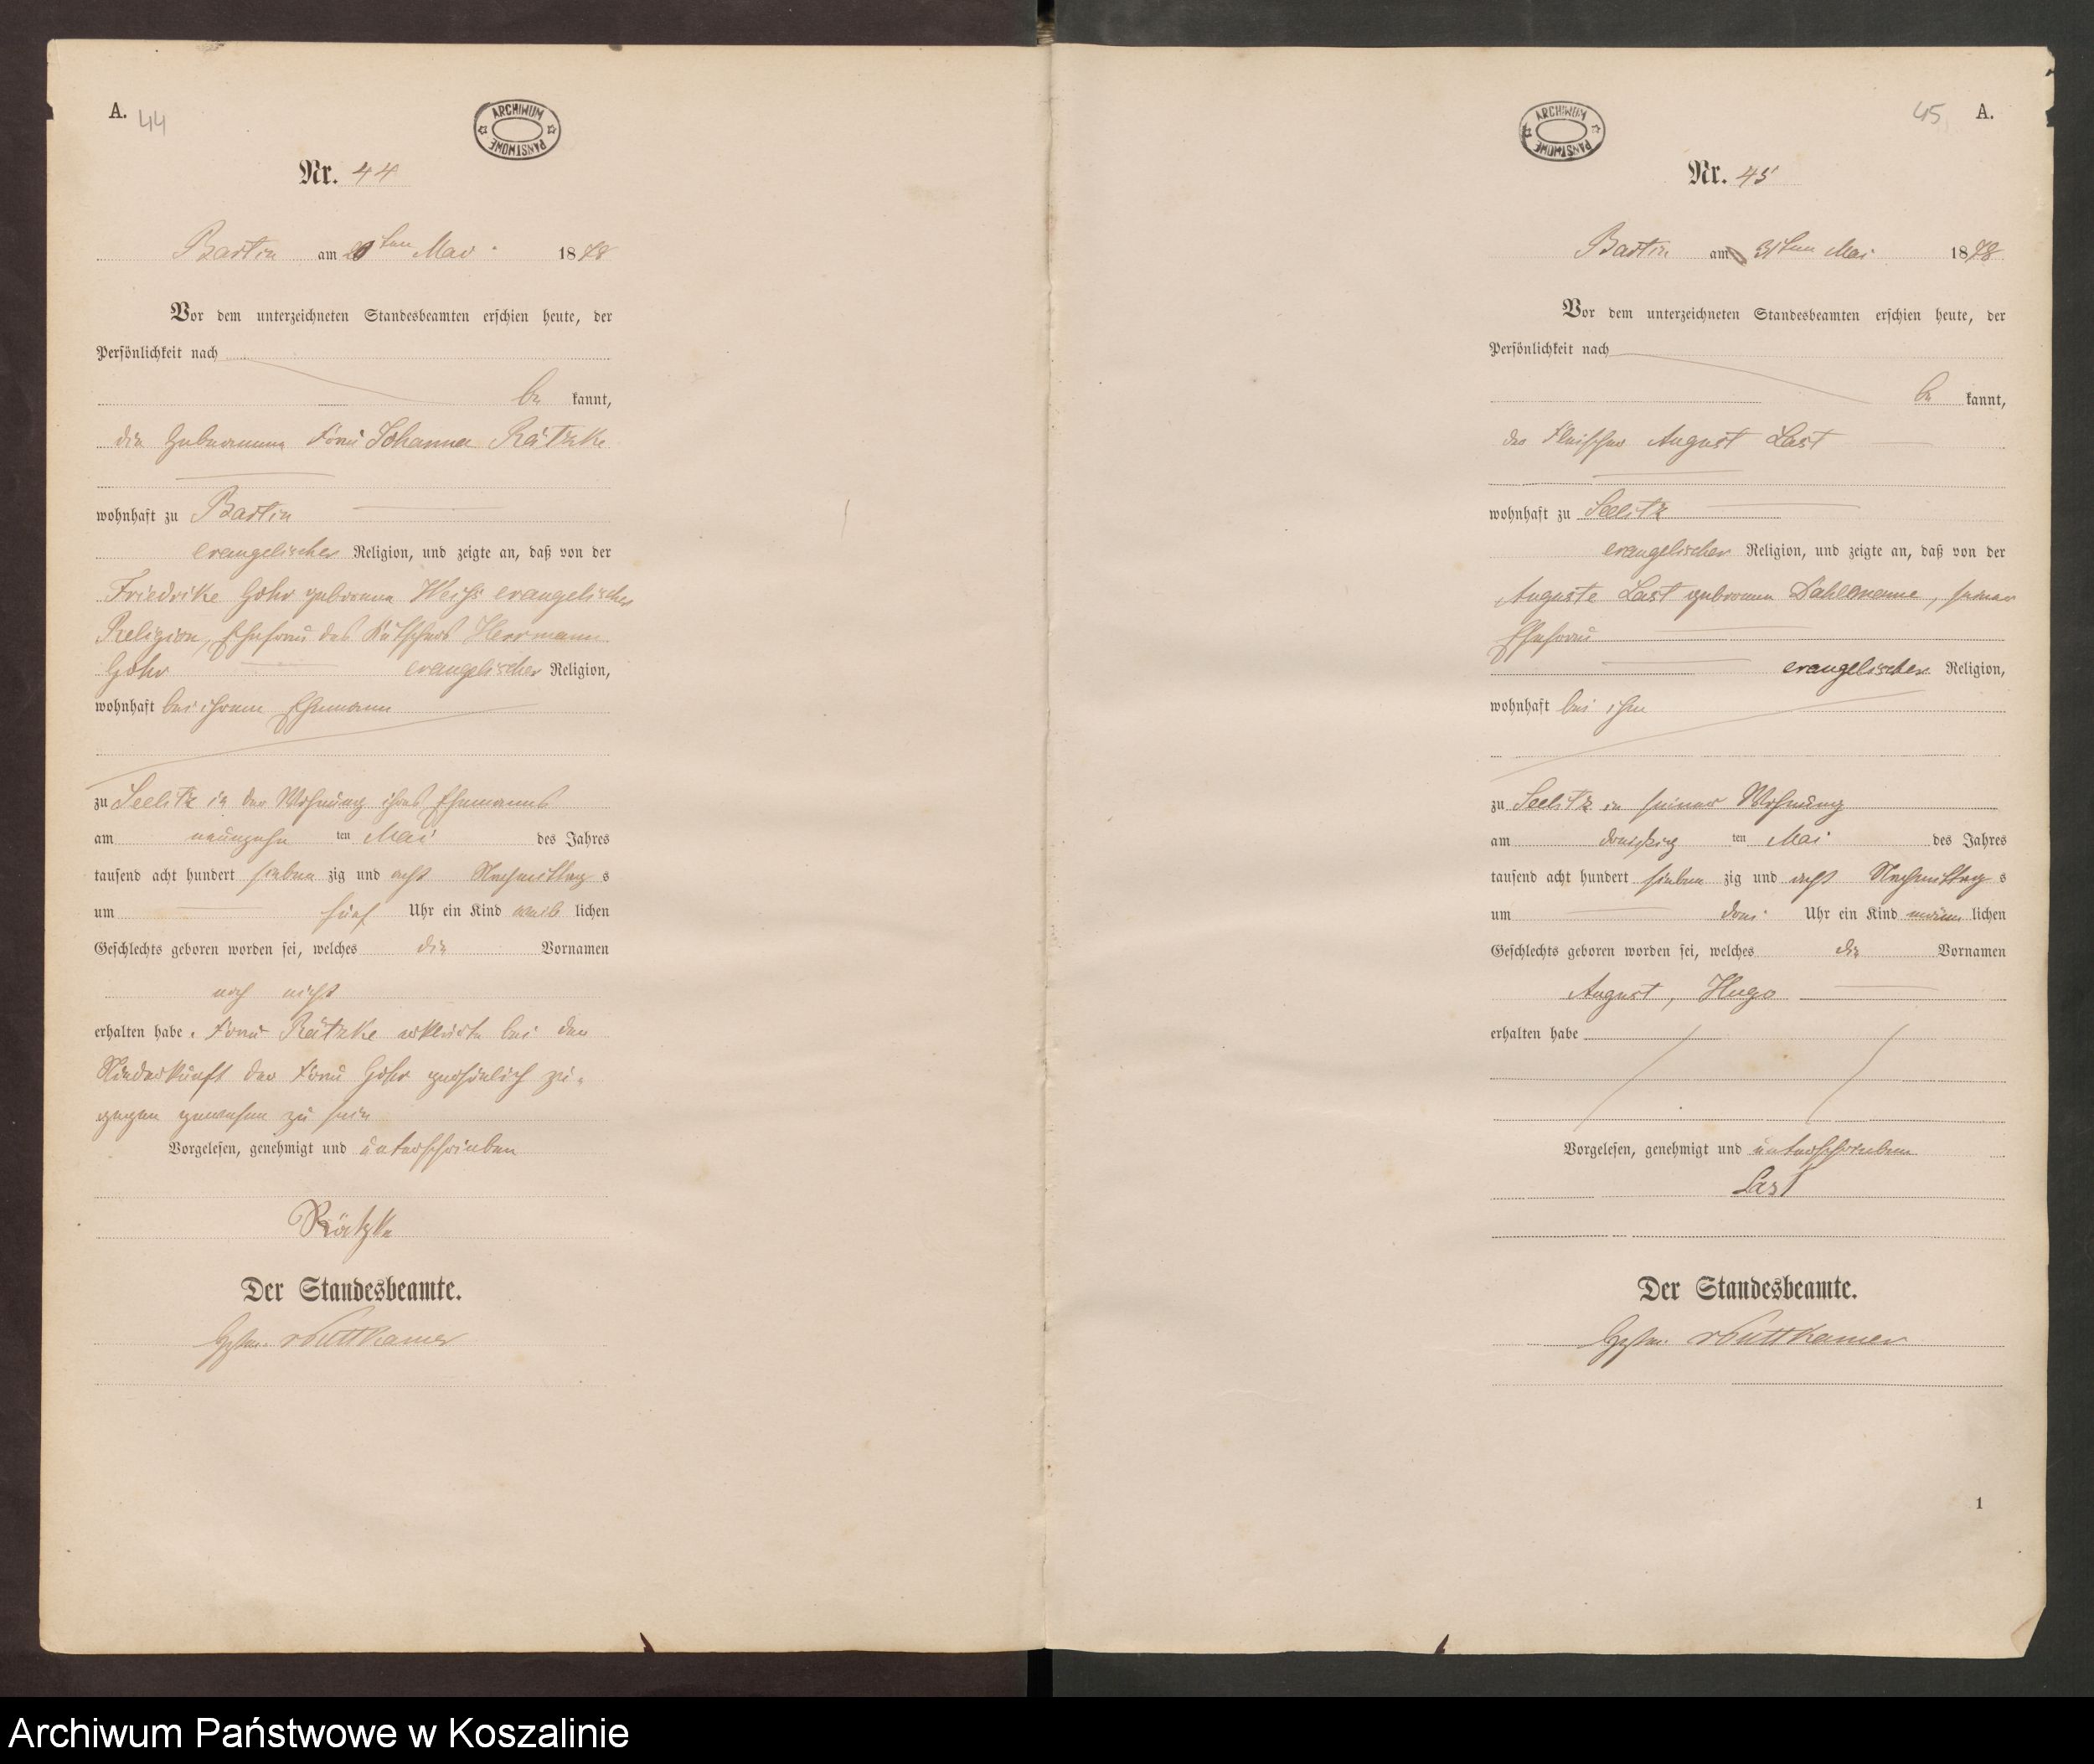 A. 44
ARCHIWUM PAŃSTWOWE
Nr. 44
Bartin am ten Mai 1878
Vor dem unterzeichneten Standesbeamten erschien heute, der
Persönlichkeit nach
be kannt,
die Hebeamme Frau Johanna Rätzke
wohnhaft zu Bartin
evangelischer Religion, und zeigte an, daß von der
Friedrike Gohr geborene Weiß evangelischer
Religion, Ehefrau des Kutschers Herrmann
Gohr evangelischer Religion,
wohnhaft bei ihrem Ehemann
zu Seelitz in der Wohnung ihres Ehemannes
am neunzehn ten Mai des Jahres
tausend acht hundert sieben zig und acht Nachmittag s
um fünf Uhr ein Kind weib lichen
Geschlechts geboren worden sei, welches die Vornamen
noch nicht
erhalten habe. Frau Rätzke erklärte bei der
Niederkunft der Frau Gohr persönlich zu-
gegen gewesen zu sein
Vorgelesen, genehmigt und unterschrieben
Rätzke
Der Standesbeamte.
vPuttkamer
45 A.
ARCHIWUM PAŃSTWOWE
Nr. 45
Bartin am 31ten Mai 1878
Vor dem unterzeichneten Standesbeamten erschien heute, der
Persönlichkeit nach
be kannt,
der Fleischer August Last
wohnhaft zu Seelitz
evangelischer Religion, und zeigte an, daß von der
Auguste Last geborene , seiner
Ehefrau
evangelischer Religion,
wohnhaft bei ihm
zu Seelitz in seiner Wohnung
am dreißig ten Mai des Jahres
tausend acht hundert sieben zig und acht Nachmittag s
um drei Uhr ein Kind männ lichen
Geschlechts geboren worden sei, welches die Vornamen
August, Hugo
erhalten habe
Vorgelesen, genehmigt und unterschrieben
Last
Der Standesbeamte.
vPuttkamer
1
Archiwum Państwowe w Koszalinie